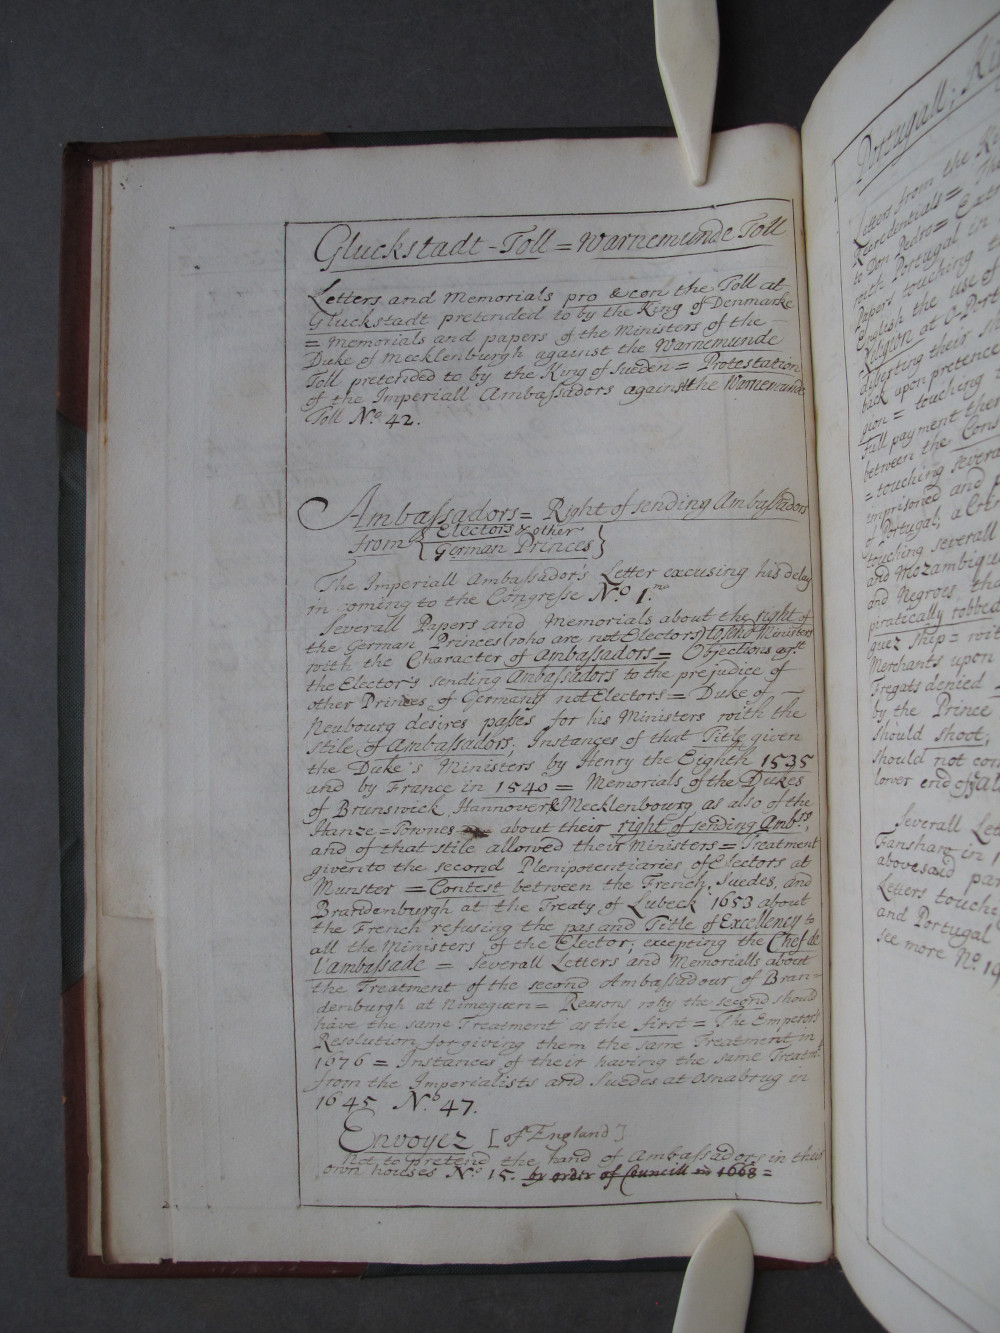 Gluckstadt - Toll = Warnemunde Toll
Letters and Memorials pro & con the Toll at
Gluckstadt pretended to by the King of Denmarke
= Memorials and papers of the Ministers of the
Duke of Mecklenburgh against the Warnemunde
Toll pretended to by the King of Sueden = Protestation
of the Imperiall Ambassadors against the Warnemunde
Toll No. 42.
Ambassadors = Right of sending Ambassadors
from { Electors & other
German Princes }
The Imperiall Ambassador's Letter excusing his delay
in coming to the Congresse No. 1.
Severall Papers and Memorials about the right of
the German Princes (who are not Electors) to send Ministers
with the Character of Ambassadors = Objections agst
the Elector's sending Ambassadors to the prejudice of
other Princes of Germany not Electors = Duke of
Neubourg desires passes for his Ministers with the
stile of Ambassadors; Instances of that Title given
the Duke's Ministers by Henry the Eighth 1535
and by France in 1540 = Memorials of the Dukes
of Brunswick, Hannover & Mecklenbourg as also of the
Hanze = Townes about their right of sending Ambrs,
and of that stile allowed their Ministers = Treatment
given to the second Plenipotentiaries of Electors at
Munster = Contest between the French, Suedes, and
Brandenburgh at the Treaty of Lubeck 1653 about
the French refusing the pas and Title of Excellency to
all the Ministers of the Elector; excepting the Chef de
l'ambassade = Severall Letters and Memorialls about
the Treatment of the second Ambassadour of Bran-
denburgh at Nimeguen = Reasons why the second should
have the same Treatment as the first = The Emperor's
Resolution for giving them the same Treatment in
1676 = Instances of their having the same Treatmt
from the Imperialists and Suedes at Osnabrug in
1645 No. 47.
Envoyez [of England]
Not to pretend the hand of Ambassadors in their
own houses No. 15. by order of Councill in 1668 =
Portugall;
Letters from the
Credentials =
to Don Pedro =
with Portugal in
Papers touching
English the use of
Religion at O-Port
diverting their
back upon pretence
gion = touching
full payment
between the
= touching severa
imprisoned and
of Portugal,
touching severall
and Mozambique
and Negroes,
piratically robbed
guez ship =
Merchants upon
Fregats denied
by the Prince
should shoot;
should not
lower end of
Severall
Fanshaw in
abovesaid
Letters
and Portugal
see more No. 19